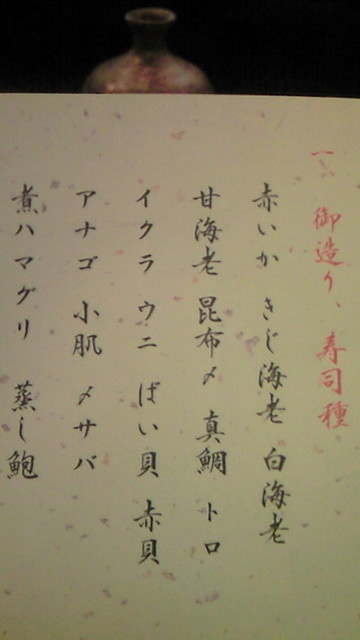 一、御造り、寿司種
赤いか きじ海老 白海老
甘海老 昆布〆 真鯛 トロ
イクラ ウニ ばい貝 赤貝
アナゴ 小肌 〆サバ
煮ハマグリ 蒸し鮑